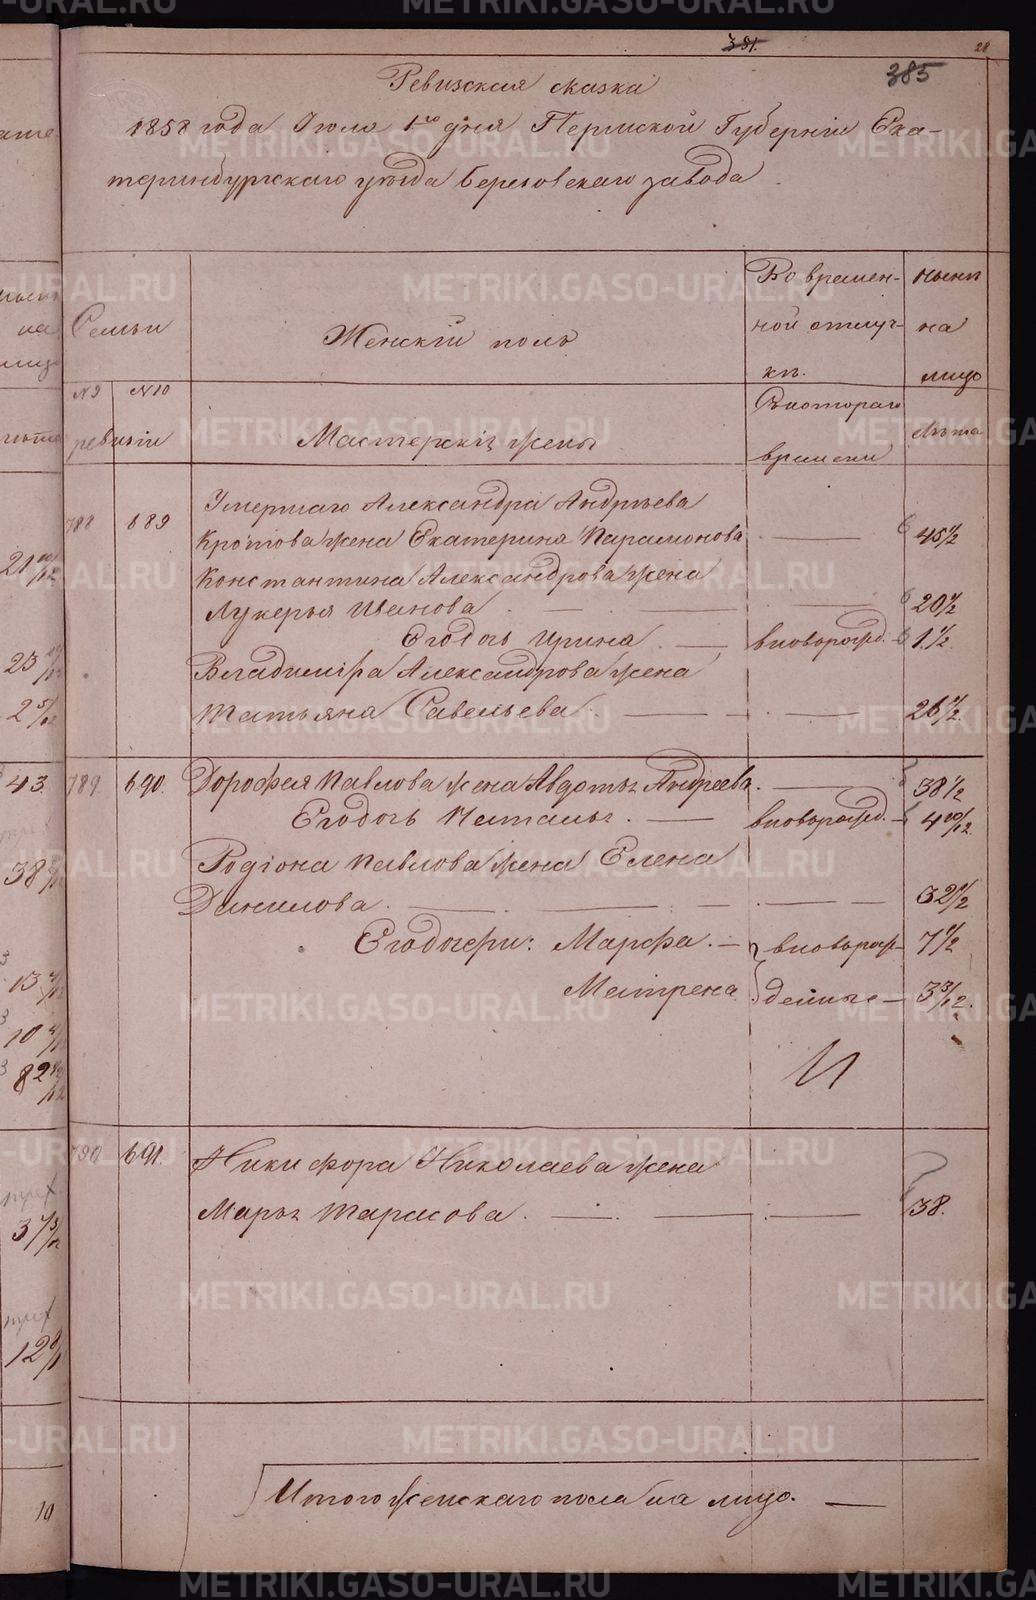 381.
28
385
Ревизская сказка
1858 года Июля 1го дня Пермской Губернiи Ека-
теринбургскаго уѣзда Березовскаго завода
Семьи
Женскiй полъ
Во времен-
ной отлуч-
кѣ.
нынѣ
на
лицо
№ 9 № 10
ревизiи
Мастерскiя жены
Съ котораго
времени
лѣта
788 689 Умершаго Александра Андрѣева
Кротова жена Екатерина Парамонова 45 1/2
Константина Александрова жена
Лукерья Иванова 20 1/2
Его дочь Ирина вноворожд. 1 1/2
Владимiра Александрова жена
Татьяна Савельева 26 1/2
789. 690. Дорофея Павлова жена Авдотья Андреева 38 1/2
Его дочь Наталья вноворожд. 4 10/12
Родiона Павлова жена Елена
Данилова 32 1/2
Его дочери: Марфа вноворож- 7 1/2
Матрена дённые 3 3/12
790 691. Никифора Николаева жена
Марья Тарасова 38.
Итого женскаго пола на лицо.
21 10/12
23
2 5/12
43
38
13
10
82
3
12
10
METRIKI.GASO-URAL.RU